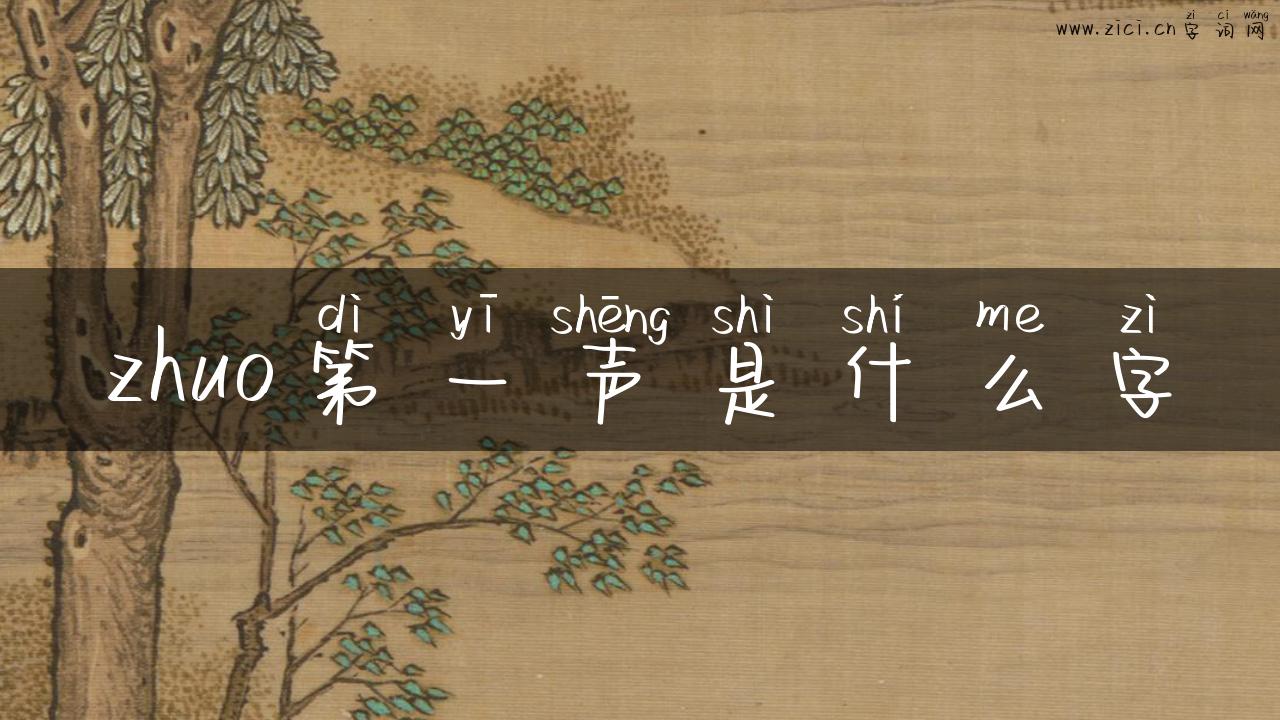 zì cí wǎng
www.zici.cn 字词网
dì yī shēng shì shí me zì
zhuo第一声是什么字